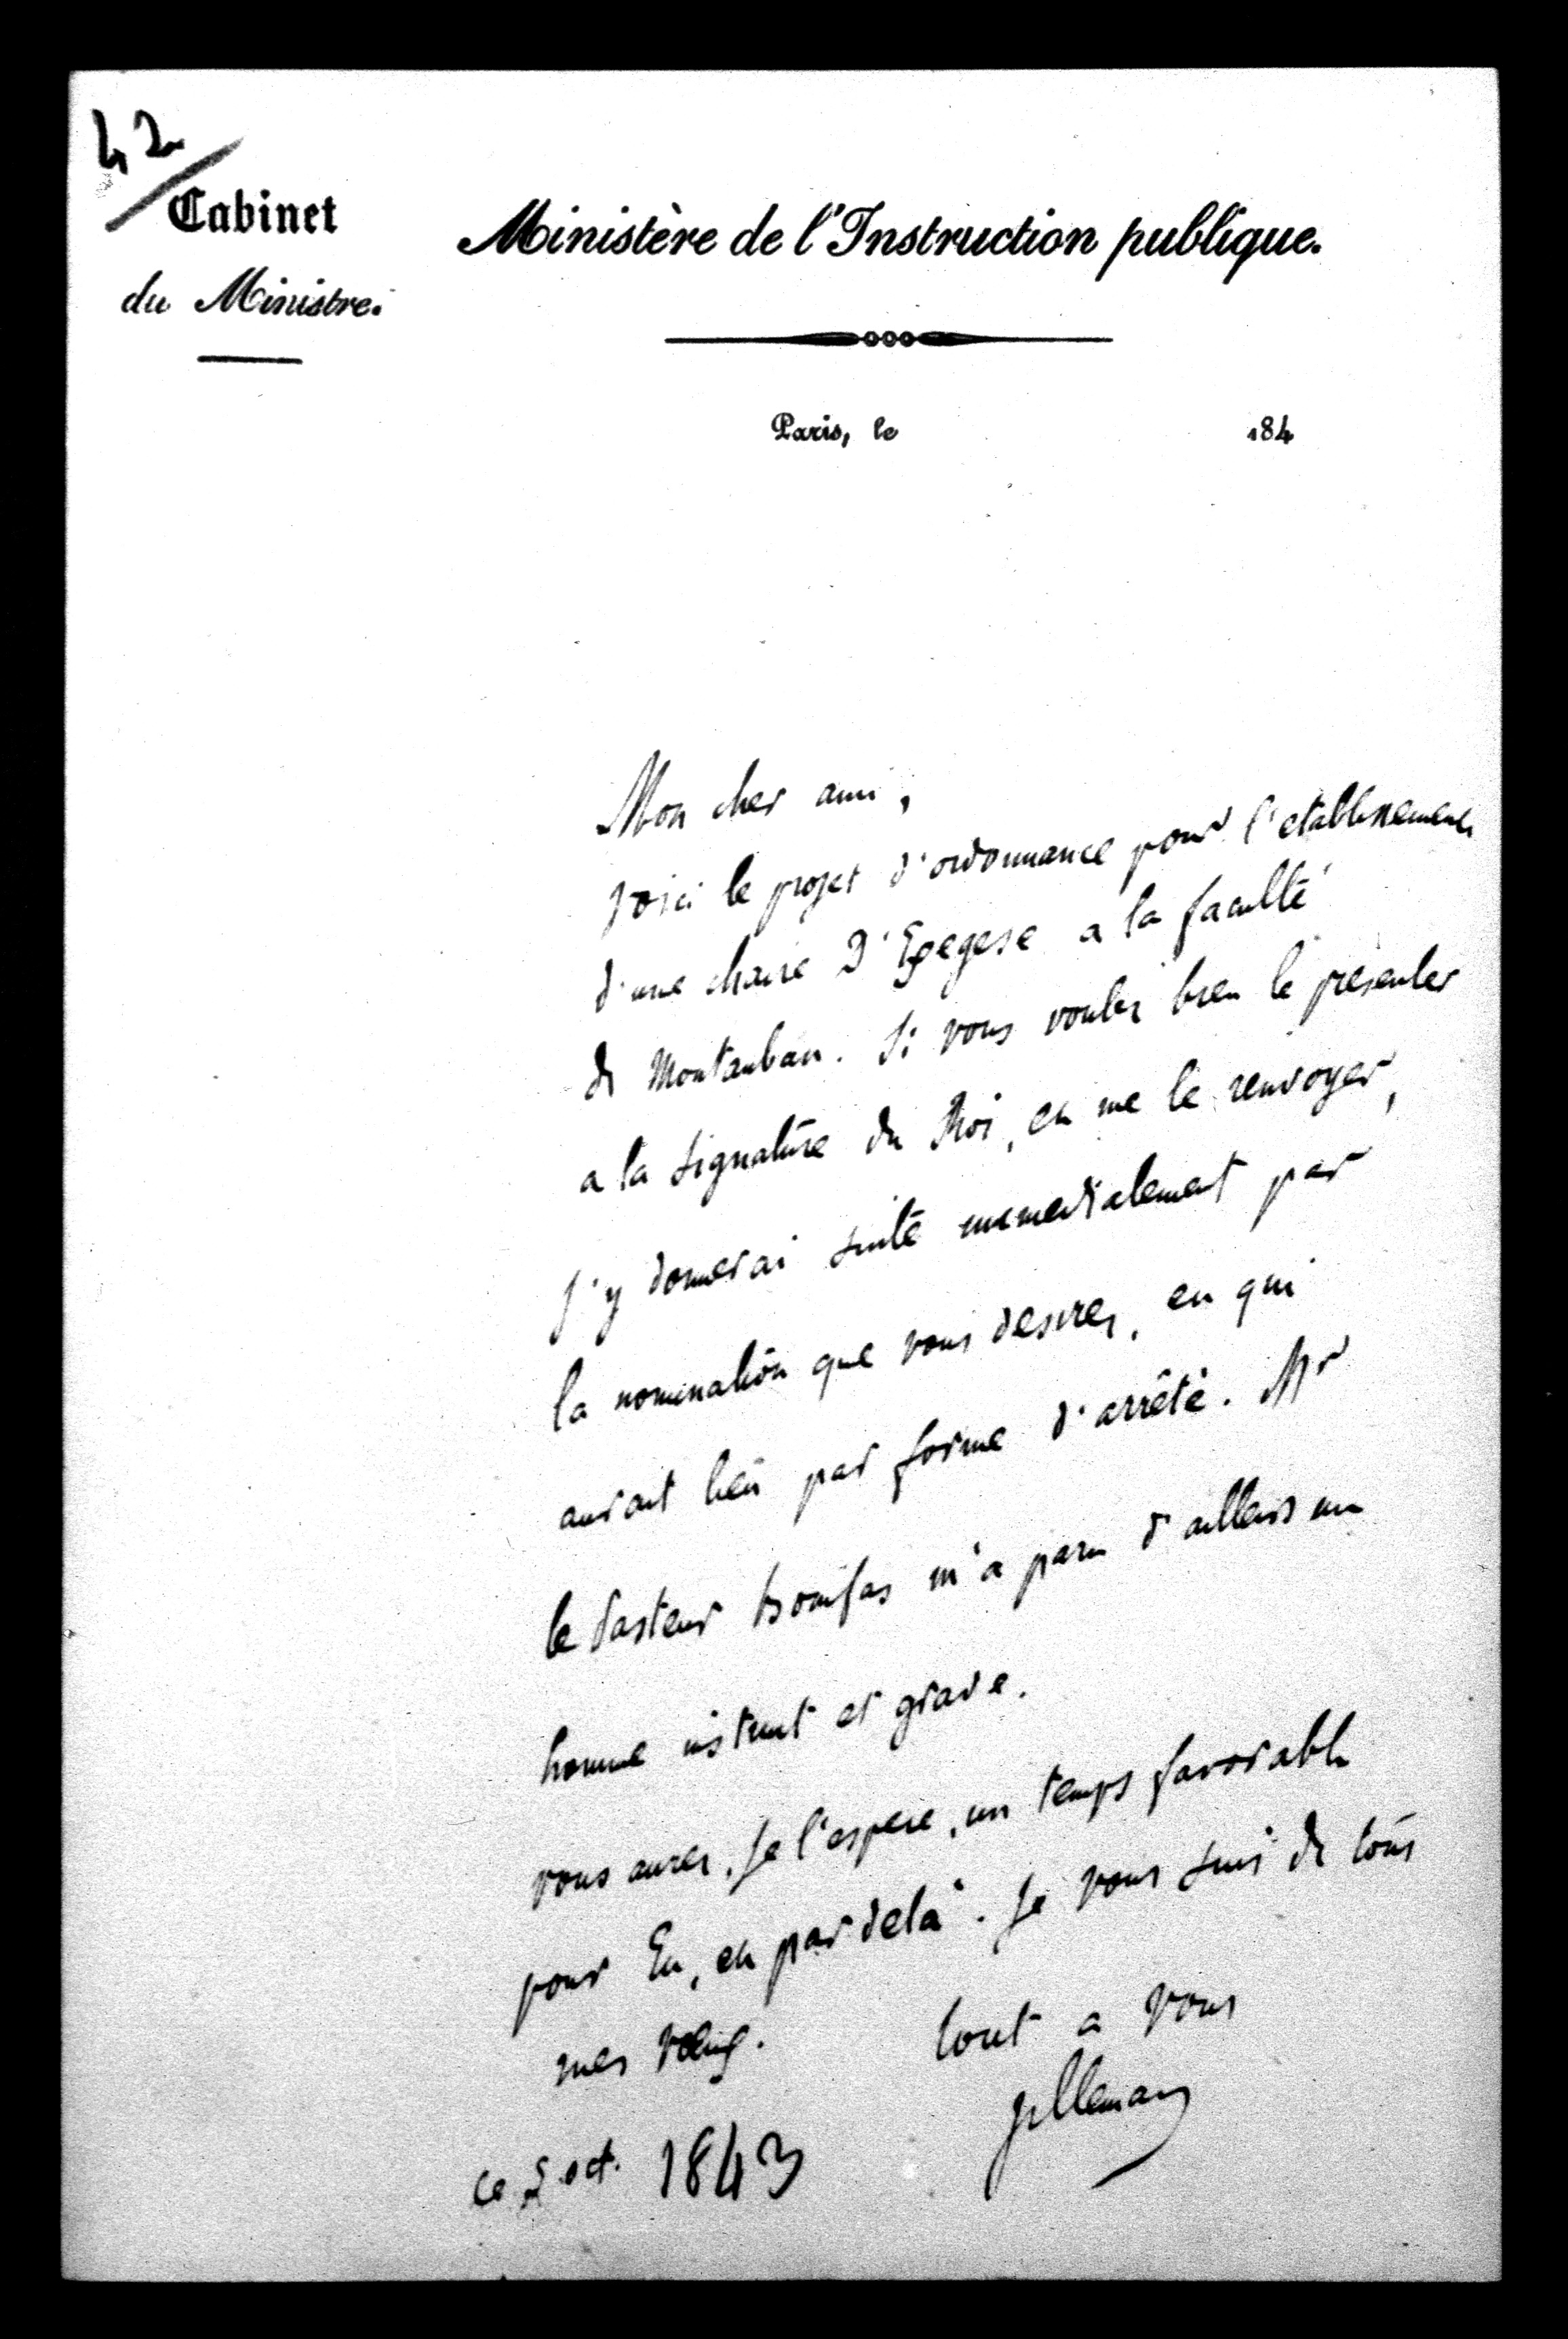 42
Cabinet
du Ministre.
Ministère de l'Instruction publique.
Paris, le 184
Mon cher ami,
voici le projet d'ordonnance pour l'etablissement
d'une chaire D'Exegese a la faculté
de Montauban. Si vous voulez bien le presenter
a la signature du Roi, et me le renvoyer,
j'y donnerai suite immediatement par
la nomination que vous desirez, et qui
aurait lieu par forme d'arrêté. Mr
le Pasteur Bonifas m'a paru d'ailleurs un
homme instruit et grave.
vous aurez, je l'espere, un temps favorable
pour Eu, et par delà. Je vous suis de tous
mes voeux.
tout a vous
Villemain
ce 5 oct. 1843